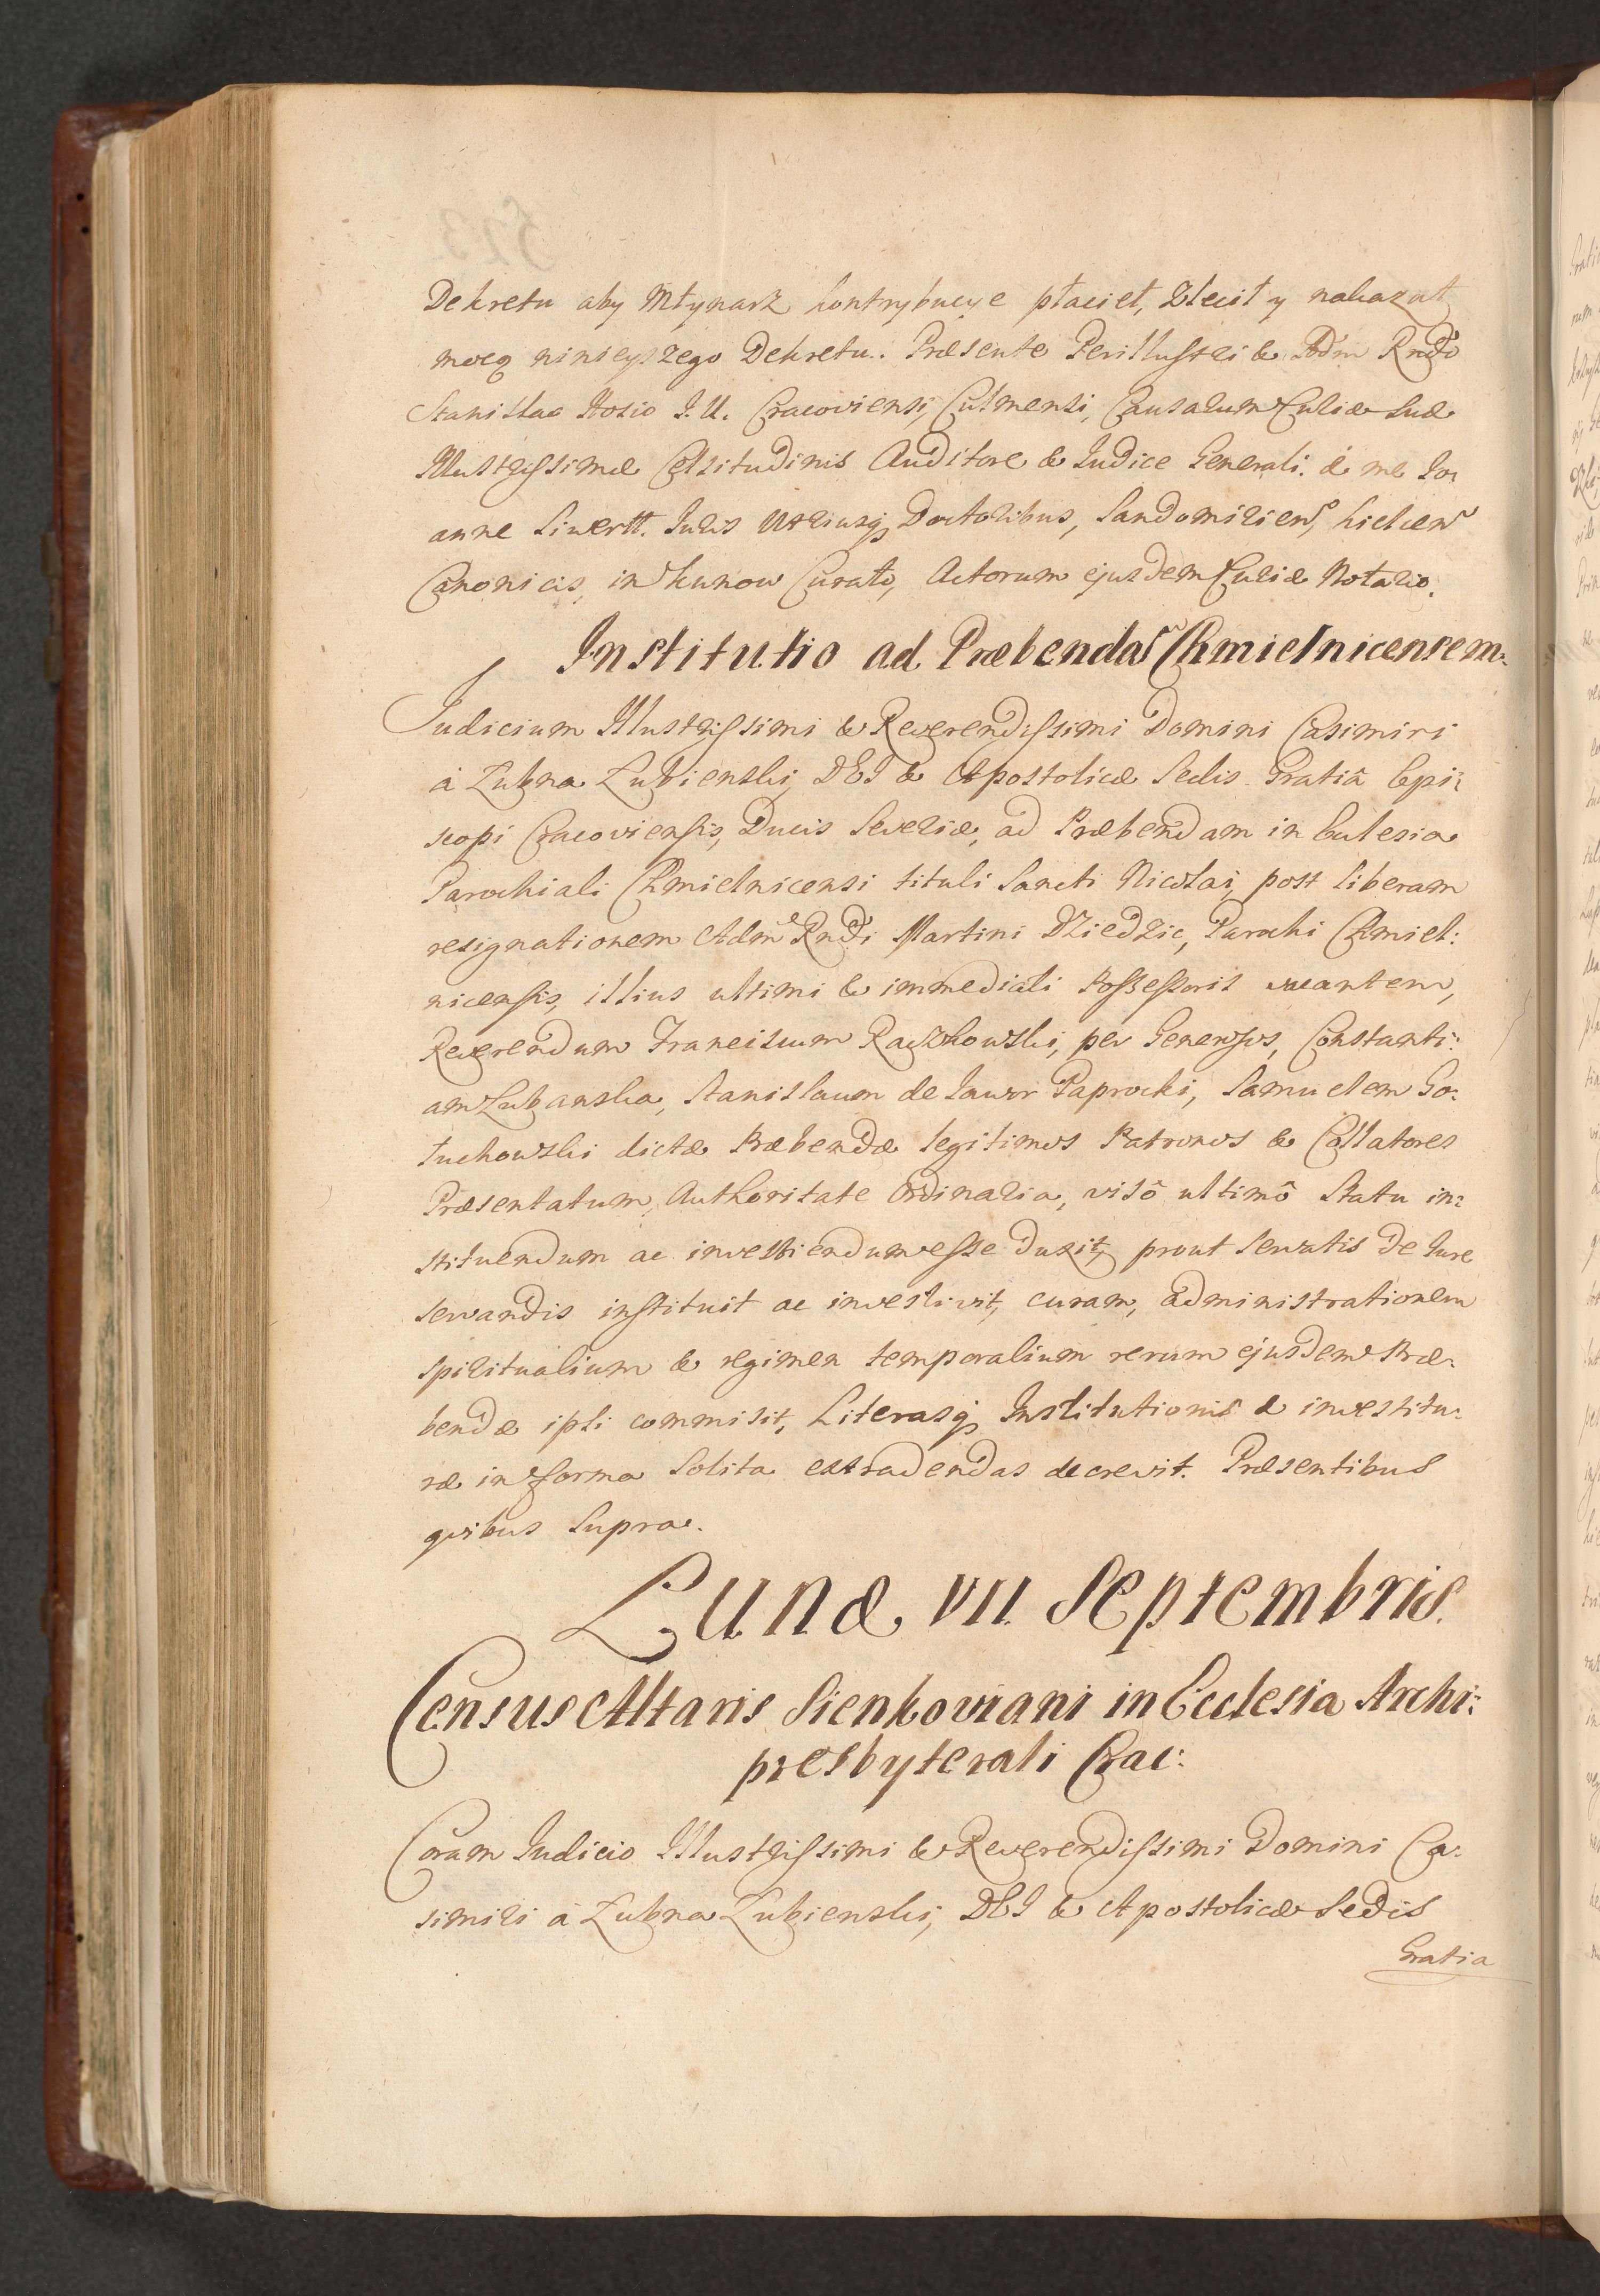 Dekretu aby Młynarz kontrybucye płacieł, Zlecił y nakazał
mocą ninieyszego Dekretu. Præsente Perillustri & Adm Rndo
Stanislao Hosio I. U. Cracoviensi, Culmensi, Causarum Curiæ Suæ
Illustrissimæ Celsitudinis Auditore & Iudice Generali. & me Io:
anne Siwertt. Iuris Utriusq Doctoribus, Sandomirien, Kielcen
Canonicis, in Kunow Curato, Actorum ejusdem Curiæ Notario.
Institutio ad Præbendā Chmielnicensem.
Iudicium Illustrissimi & Reverendissimi Domini Casimiri
à Łubna Łubienski, DEI & Apostolicæ Sedis Gratiâ Epi:
scopi Cracoviensis, Ducis Severiæ, ad Præbendam in Ecclesia
Parochiali Chmielnicensi tituli Sancti Nicolai, post liberam
resignationem Adm Rndi Martini Dziedzic, Parochi Chmiel:
nicensis, illius ultimi & immediati Possessoris vacantem,
Reverendum Franciscum Raczkowski, per Generosos, Constanti:
am Łubanska, Stanislaum de Iawor Paprocki, Samuelem Go:
łuchowski dictæ Præbendæ legitimos Patronos & Collatores
Præsentatum, Authoritate Ordinaria, visô ultimô Statu in:
stituendum ac investiendum esse duxit, prout servatis de Iure
servandis instituit ac investivit, curam, administrationem
spiritualium & regimen temporalium rerum ejusdem Præ:
bendæ ipsi commisit, Literasq Institutionis & investitu:
ræ in forma Solita extradendas decrevit. Præsentibus
quibus Supra.
Lunæ VII Septembris.
Census Altaris Sienkoviani in Ecclesia Archi:
presbyterali Crac:
Coram Iudicio Illustrissimi & Reverendissimi Domini Ca:
simiri à Łubna Łubienski, DEI & Apostolicæ Sedis
Gratia